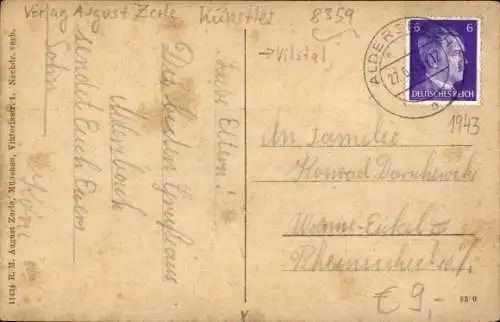 Verlag August Zerle
Künstler
8359
→ Vilstal
1943
ALDERS
27.6.
6 6
DEUTSCHES REICH
Liebe Eltern!
Die besten Grüße aus
sendet Euch Euer
Sohn
An Familie
Konrad
Wanne-Eickel
€ 9,-
11434 H. M. August Zerle, München, Viktoriastr. 1. Nachdr. verb.